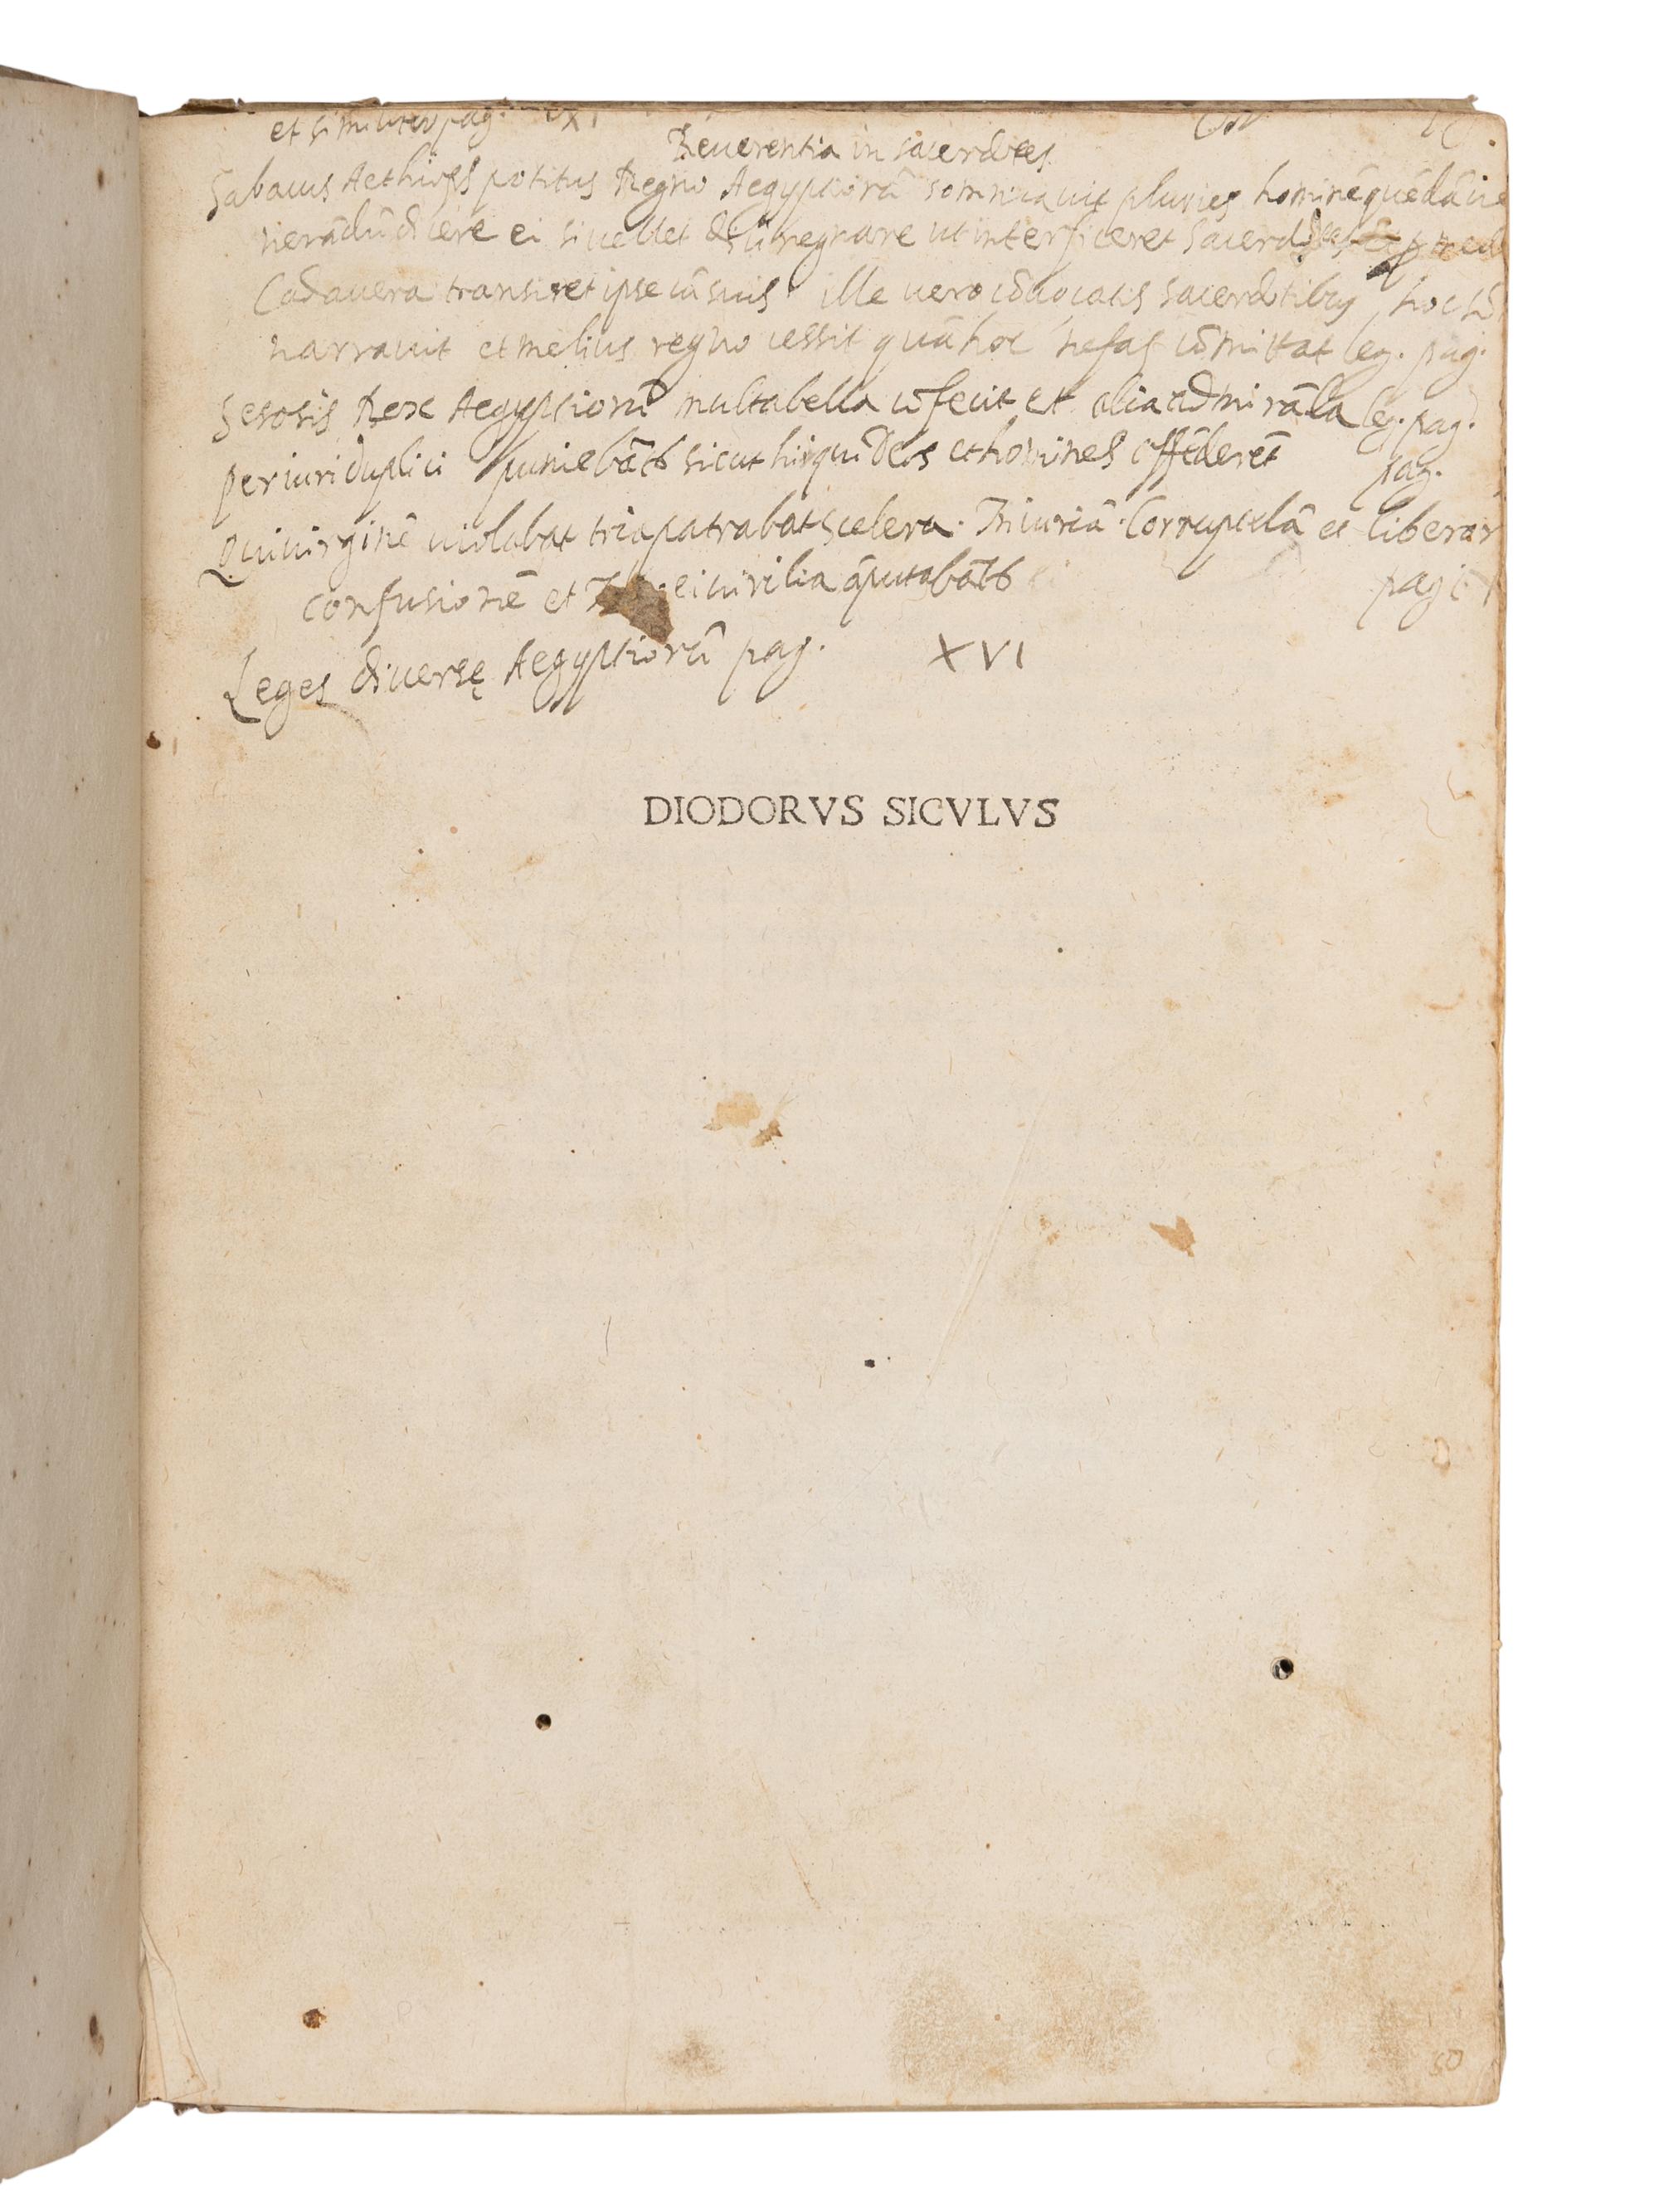 et similiter pag. IXI
Reuerentia in sacerdotes
Sabacus Aethiops potitus Regno Aegyptiorũ somniauit pluries hominẽ quẽdã ue
nerãdũ dicere ei si uellet diu regnare ut interficeret sacerdotes
Cadauera transiret ipse cũ suis ille uero cõuocatis sacerdotibus hoc
narrauit et melius regno cessit quã hoc nefas cõmittat leg. pag.
Sesosis Rex Aegyptiorũ multa bella cõfecit et alia admirãla leg. pag.
periuri duplici puniebãtr sicut hi qui Deos et homines offẽderẽt pag.
Qui uirginẽ uiolabat tria patrabat scelera. Iniuriã. Corruptelã et liberor
confusionẽ et ei uirilia ãputabãtr pag
Leges diuersę Aegyptiorũ pag. XVI
DIODORVS SICVLVS
50